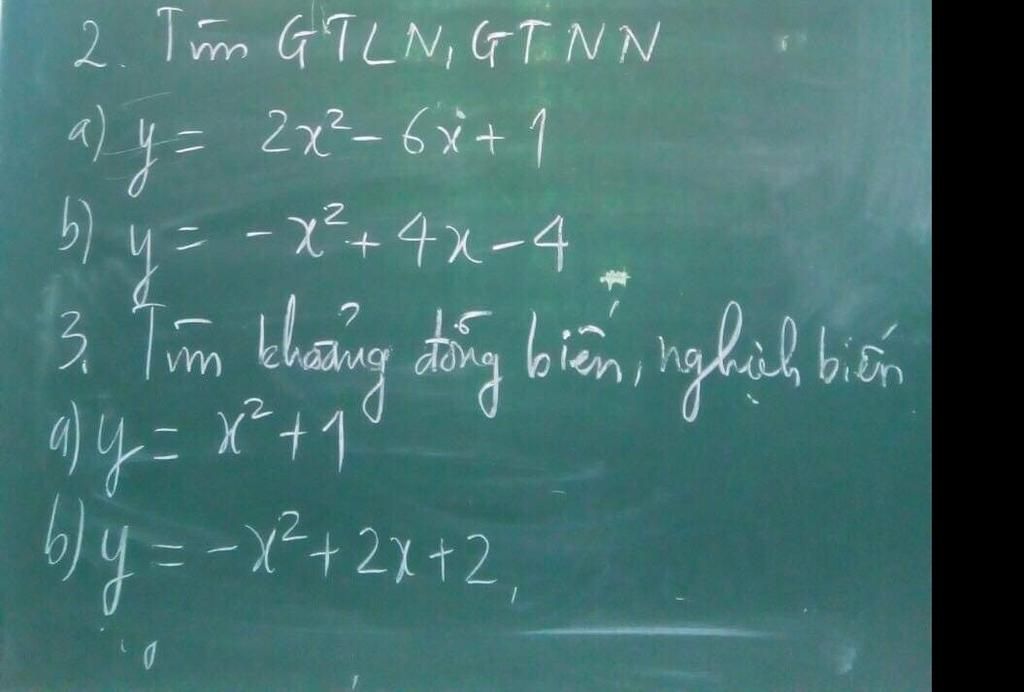 2. Tìm GTLN, GTNN
a) y = 2x² - 6x + 1
b) y = -x² + 4x - 4
3. Tìm khoảng đồng biến, nghịch biến
a) y = x² + 1
b) y = -x² + 2x + 2,